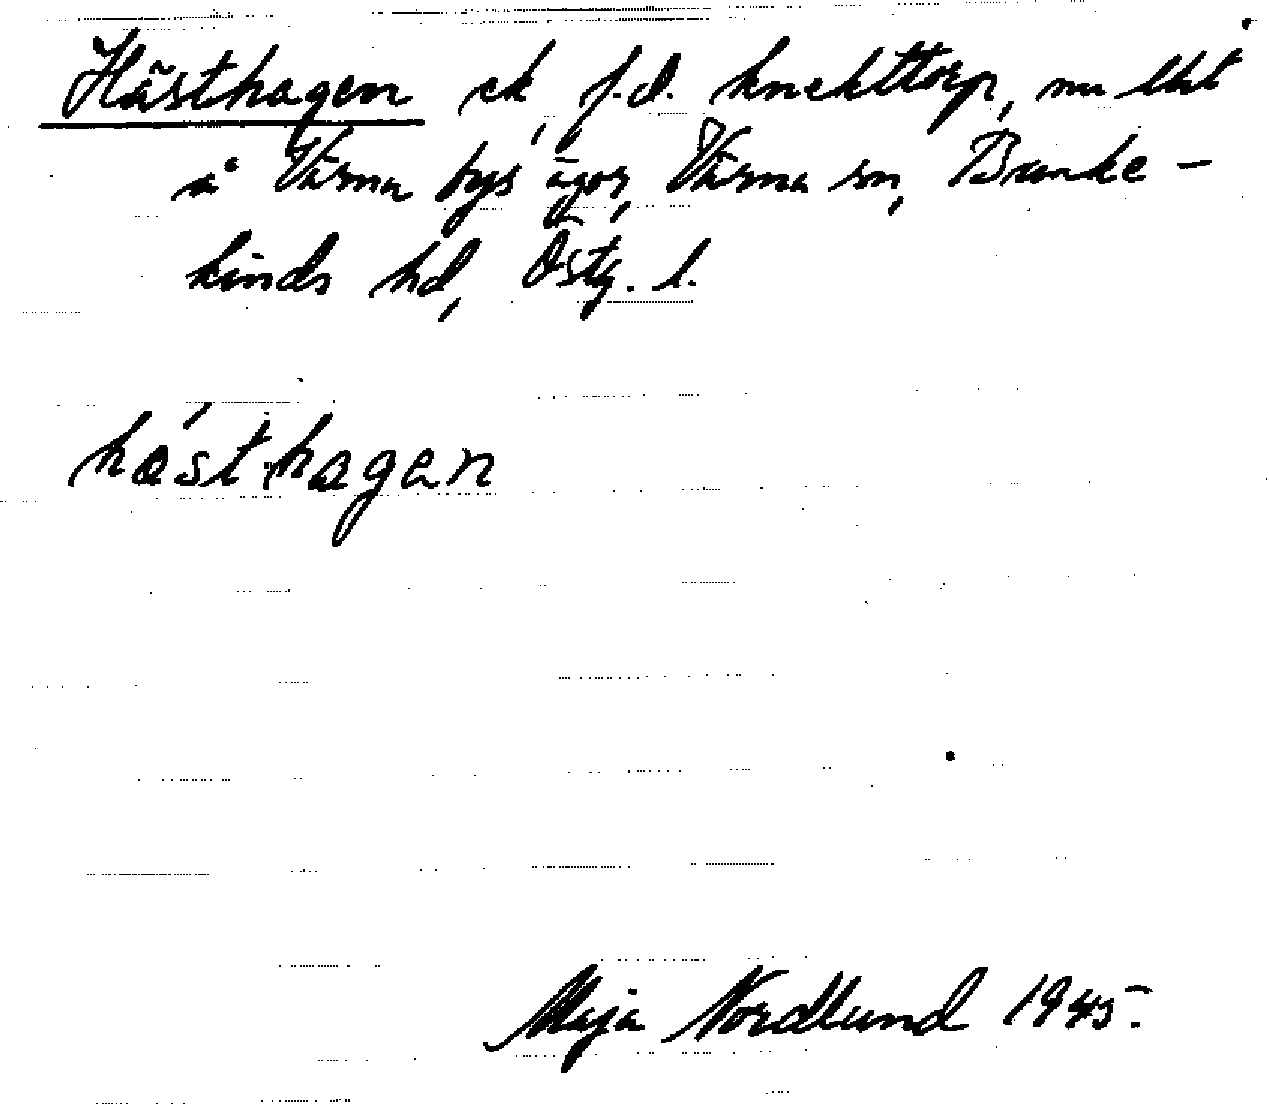 Hästhagen ck, f.d. knekttorp, nu lht
å Vårna bys ägor, Vårna sn, Banke-
kinds hd, Östg. l.
hǽst·hagan
Maja Nordlund 1945.